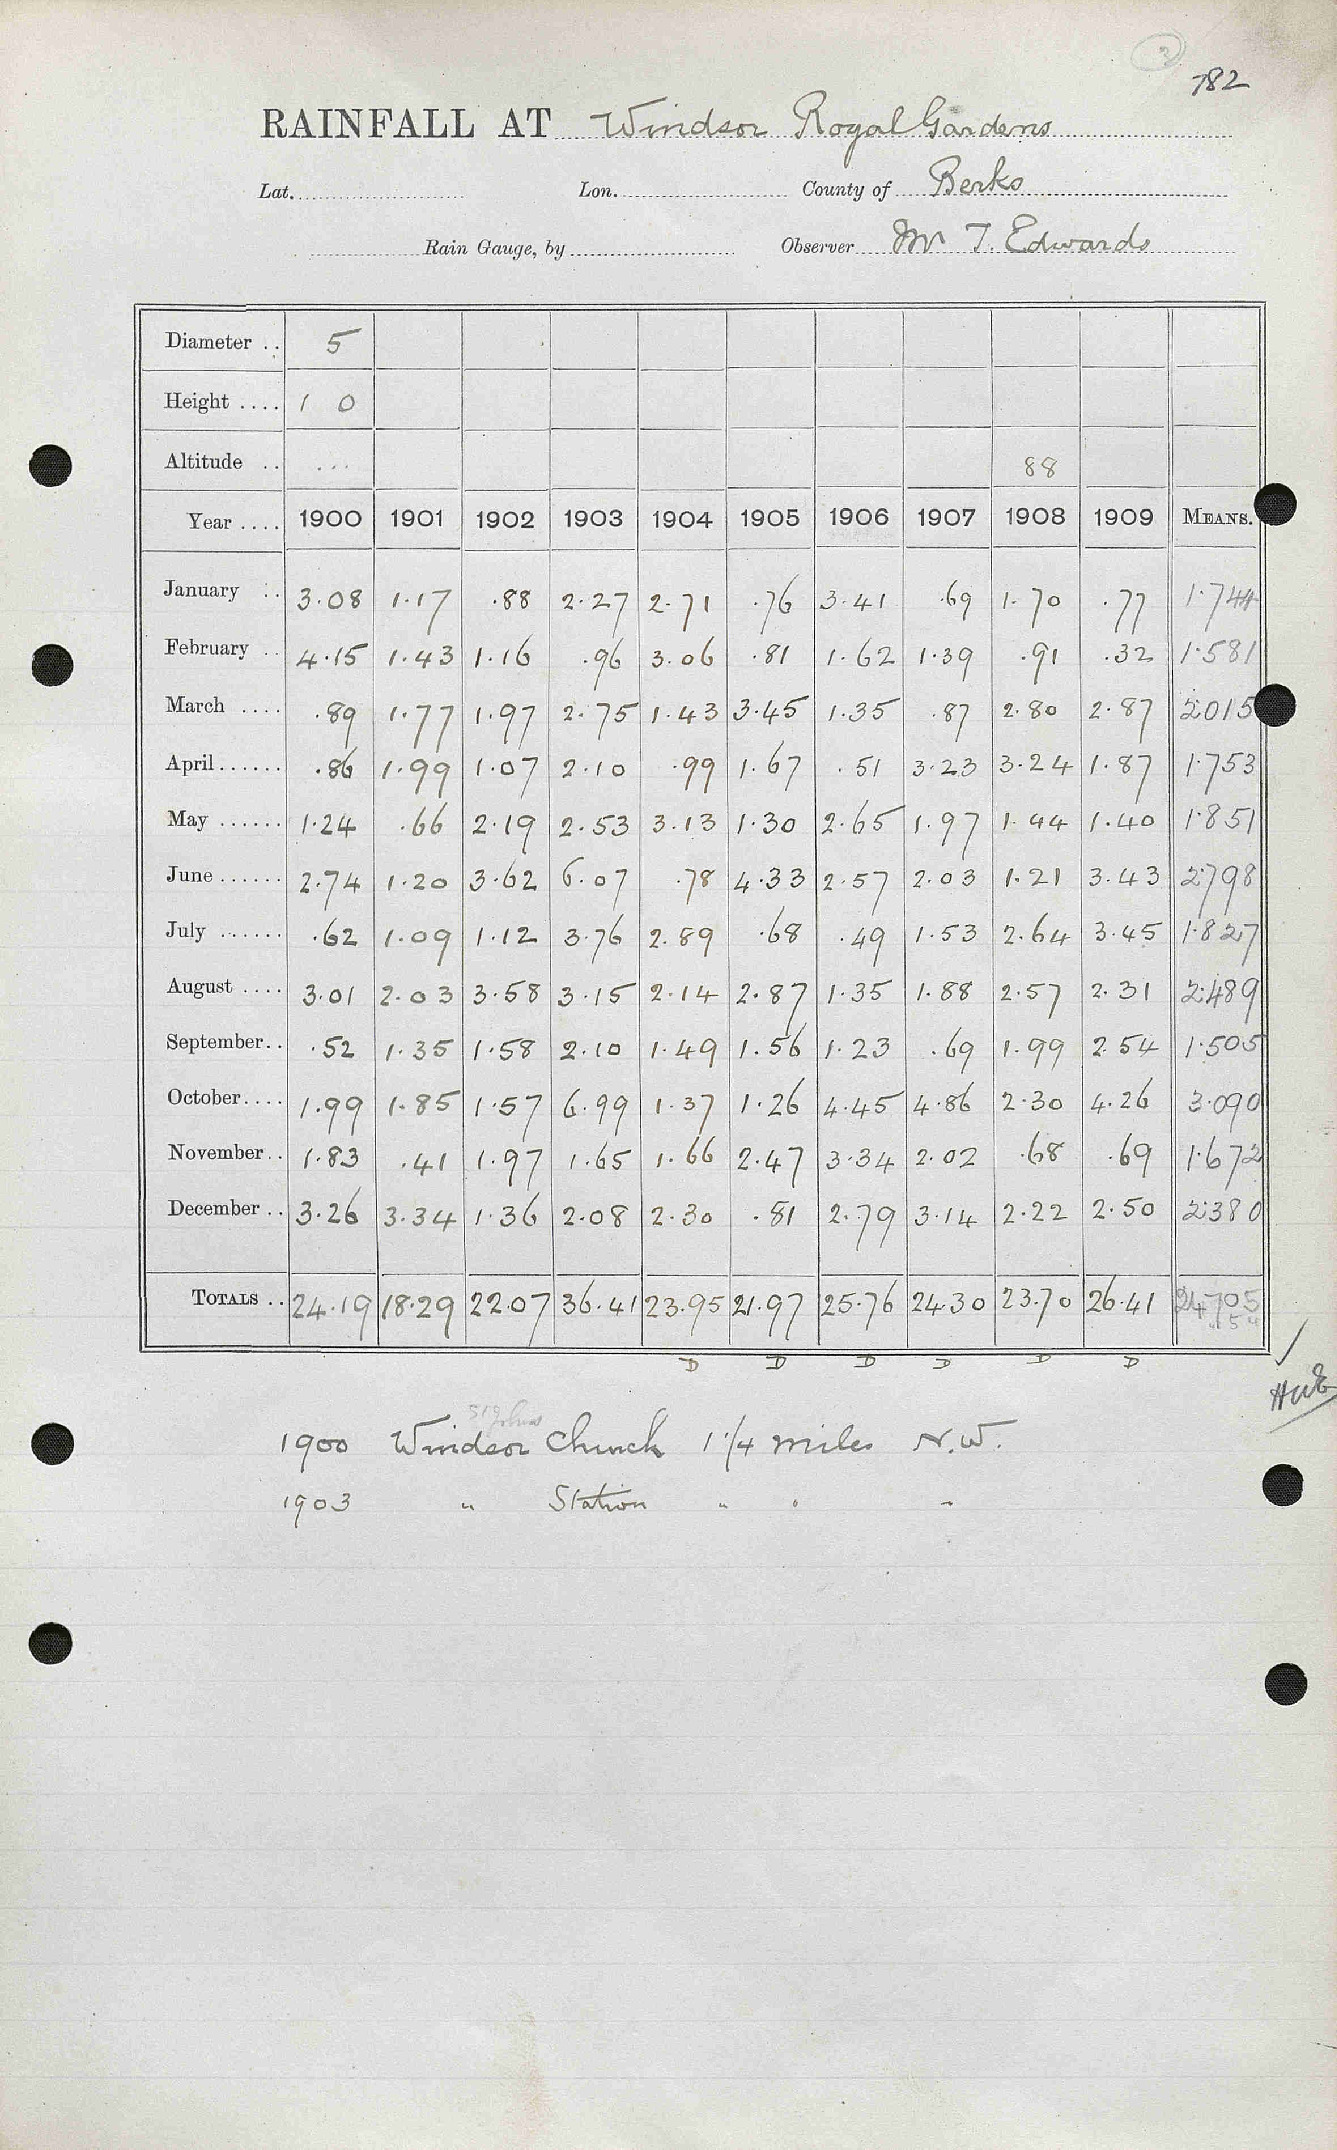 3
782
RAINFALL AT Windsor Royal Gardens
Lat. Lon. County of Berks
Rain Gauge, by Observer Mr T. Edwards
Diameter .. 5
Height .... 1 0
Altitude .. ... 88
Year .... 1900 1901 1902 1903 1904 1905 1906 1907 1908 1909 MEANS.
January .. 3.08 1.17 .88 2.27 2.71 .76 3.41 .69 1.70 .77 1.744
February .. 4.15 1.43 1.16 .96 3.06 .81 1.62 1.39 .91 .32 1.581
March .... .89 1.77 1.97 2.75 1.43 3.45 1.35 .87 2.80 2.87 2.015
April...... .86 1.99 1.07 2.10 .99 1.67 .51 3.23 3.24 1.87 1.753
May ...... 1.24 .66 2.19 2.53 3.13 1.30 2.65 1.97 1.44 1.40 1.851
June ...... 2.74 1.20 3.62 6.07 .78 4.33 2.57 2.03 1.21 3.43 2.798
July ...... .62 1.09 1.12 3.76 2.89 .68 .49 1.53 2.64 3.45 1.827
August .... 3.01 2.03 3.58 3.15 2.14 2.87 1.35 1.88 2.57 2.31 2.489
September.. .52 1.35 1.58 2.10 1.49 1.56 1.23 .69 1.99 2.54 1.505
October.... 1.99 1.85 1.57 6.99 1.37 1.26 4.45 4.86 2.30 4.26 3.090
November.. 1.83 .41 1.97 1.65 1.66 2.47 3.34 2.02 .68 .69 1.672
December .. 3.26 3.34 1.36 2.08 2.30 .81 2.79 3.14 2.22 2.50 2.380
TOTALS .. 24.19 18.29 22.07 36.41 23.95 21.97 25.76 24.30 23.70 26.41 24.705
D D D D D D
St Johns
1900 Windsor Church 1 1/4 miles N.W.
1903 " Station " " "